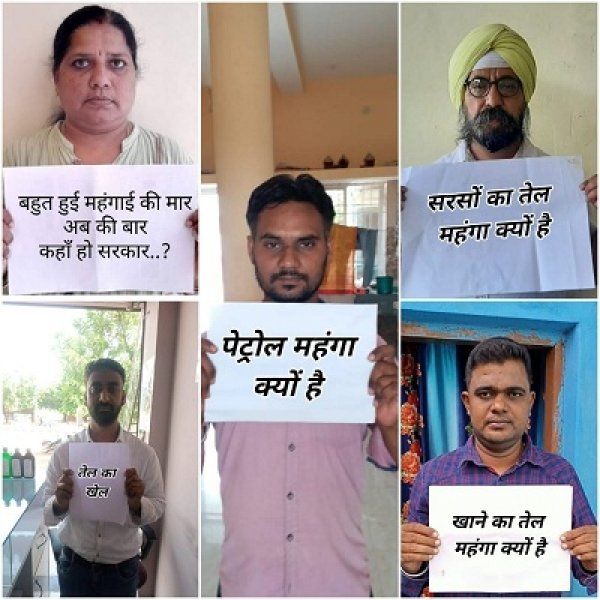 बहुत हुई महंगाई की मार
अब की बार
कहाँ हो सरकार..?
पेट्रोल महंगा
क्यों है
सरसों का तेल
महंगा क्यों है
तेल का
खेल
खाने का तेल
महंगा क्यों है